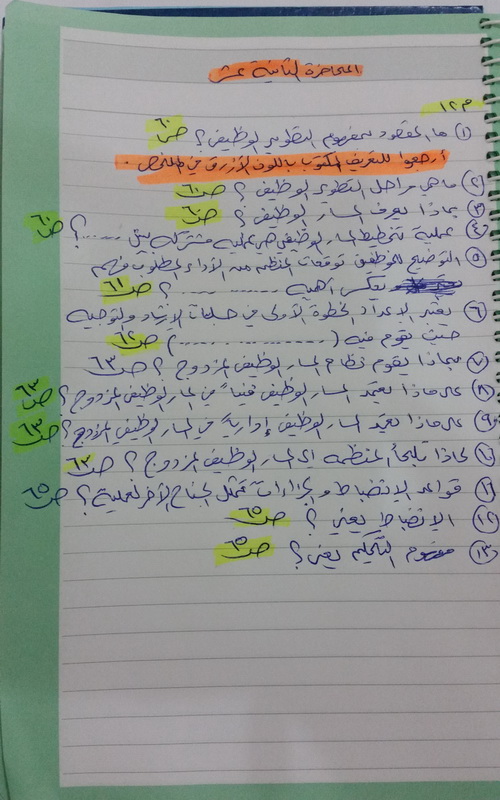 المحاضرة الثانية عشر
م١٢
١) ما المقصود بمفهوم التطوير الوظيفي؟ ص٦٠
أرجعوا للتعريف المكتوب باللون الأزرق في الملخص.
٢) ماهي مراحل التطوير الوظيفي؟ ص٦٠
٣) بماذا يعرف المسار الوظيفي؟ ص٦٠
٤) عملية تخطيط المسار الوظيفي هي عملية مشتركة بين ......؟ ص٦٠
٥) التوضيح للموظفين توقعات المنظمة من الأداء المطلوب منهم
يعكس أهمية ............؟ ص٦١
٦) يعتبر الإعداد الخطوة الأولى في جلسات الإرشاد والتوجيه
حيث تقوم فيه (............) ص٦٢
٧) بماذا يقوم نظام المسار الوظيفي المزدوج؟ ص٦٣
٨) على ماذا يعتمد المسار الوظيفي فنياً في المسار الوظيفي المزدوج؟ ص٦٣
٩) على ماذا يعتمد المسار الوظيفي إدارياً في المسار الوظيفي المزدوج؟ ص٦٣
١٠) لماذا تلجأ المنظمة إلى المسار الوظيفي المزدوج؟ ص٦٣
١١) قواعد الانضباط و الجزاءات تمثل الجناح الآخر لعملية؟ ص٦٥
١٢) الانضباط يعني؟ ص٦٥
١٣) مفهوم التحكيم يعني؟ ص٦٥